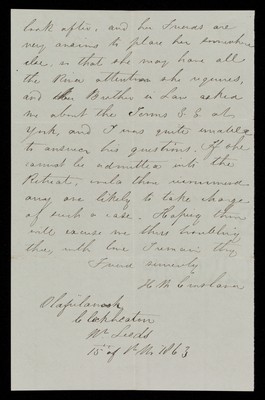 look after, and her Friends are
very anxious to place her somewhere
else, so that she may have all
the Rever attention she requires,
and her Brother in Law asked
me about the Terms &c at
York, and I was quite unable
to answer his questions. If she
cannot be admitted into the
Retreat, wilt thou recommend
any one likely to take charge
of such a case. Hoping thou
wilt excuse me thus troubling
thee, with love I remain thy
Friend sincerely
H M
Cleckheaton
Nr Leeds
15th of 1863